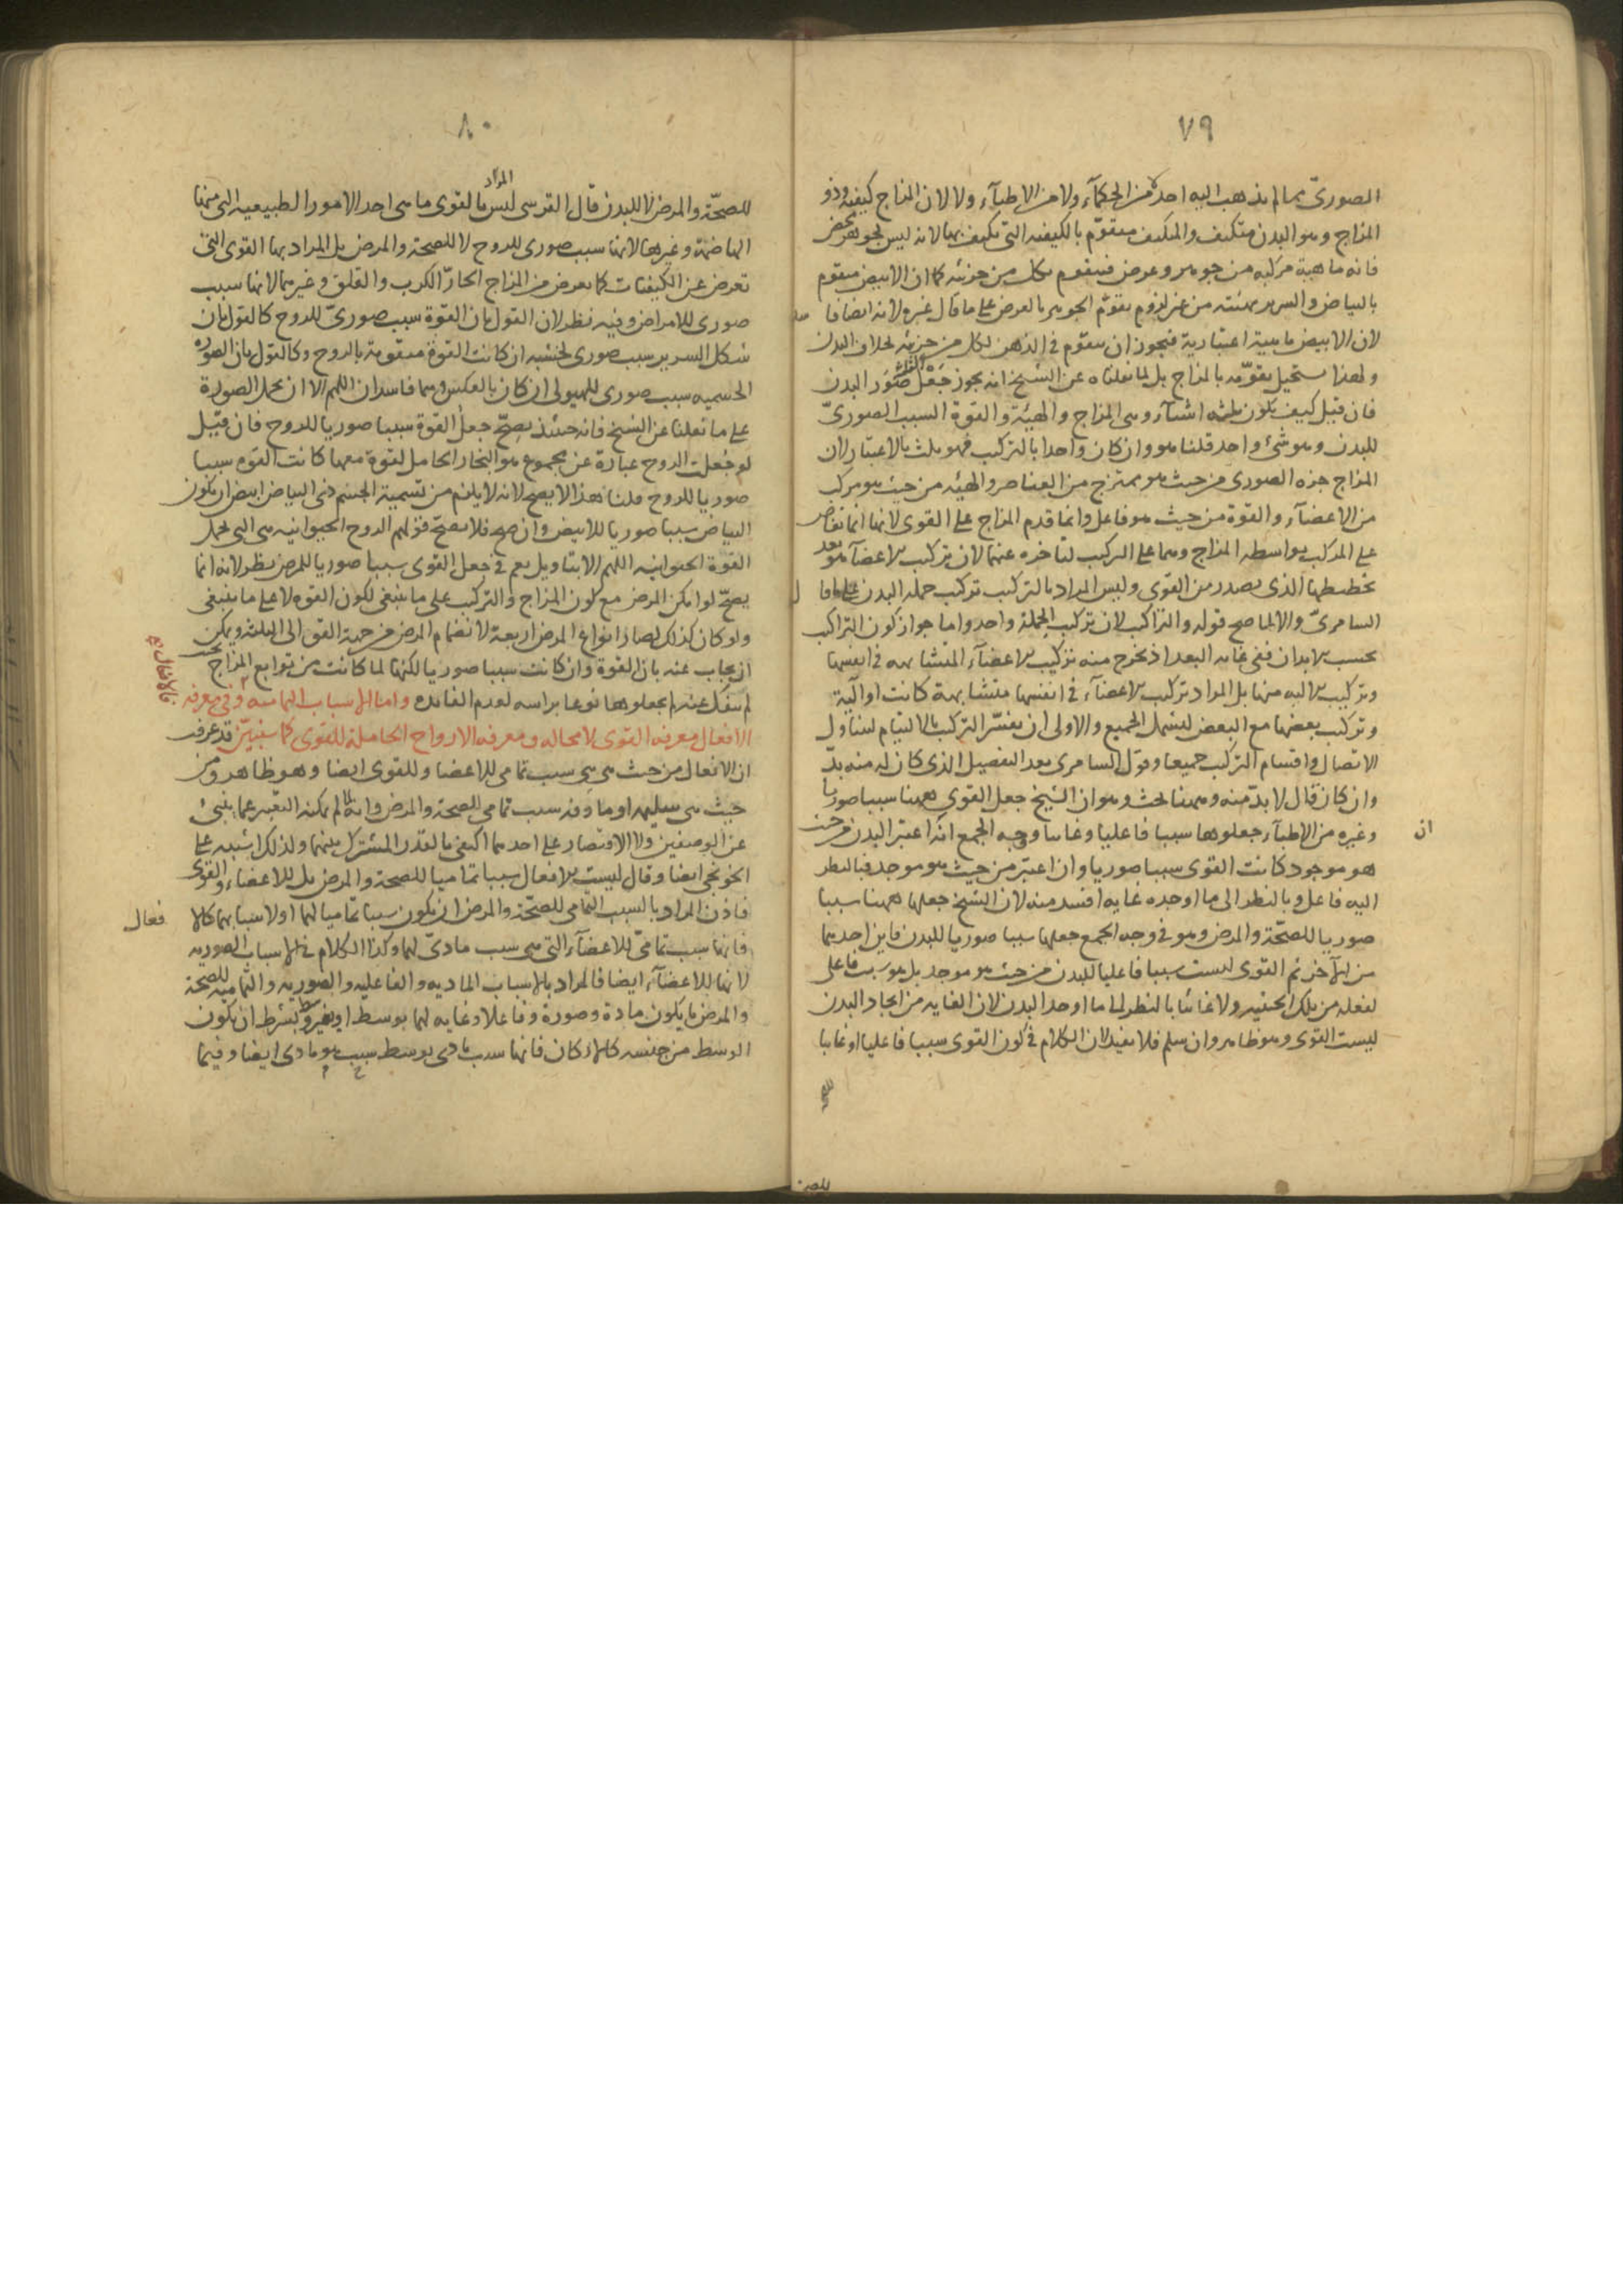 ٧٩
الصوریّ مما لم یذهب الیه احد من الحکمآء ولا من الاطبآء ولا لان المزاج کیفیة وذو
المزاج وهو البدن متکیف والمتکیف متقوّم بالکیفیه التی تکیف بها لانه لیس بجوهر محض
فانه ماهیة مرکبه من جوهر وعرض فیتقوم بکل من جزئیه کما ان الابیض متقوم
بالبیاض والسریر بهیئته من غیر لزوم تقوّم الجوهر بالعرض علی ما قال غیره لانه ایضا فا
لان الابیض ماهیة اعتباریة فیجوز ان یتقوّم فی الذهن بکل من جزئیه بخلاف البدن
ولهذا یستحیل تقوّمه بالمزاج بل لما نقلناه عن الشیخ انه یجوز جَعْل صُوَر البدن
فان قیل کیف یکون ثلثه اشیآء وهی المزاج والهیئة والقوة السبب الصوریّ
للبدن وهو شئ واحد قلنا هو وان کان واحدا بالترکیب فهو ثلث بالاعتبار لان
المزاج جزه الصوری من حیث هو ممتزج من العناصر والهیئه من حیث هو مرکب
من الاعضآء والقوة من حیث هو فاعل وانما قدم المزاج علی القوی لانها انما تفاض
علی المرکب بواسطه المزاج وهما علی الترکیب لتاخره عنهما لان ترکیب الاعضآء هو بعد
تخطیطها الذی یصدر من القوی ولیس المراد بالترکیب ترکیب جمله البدن علی ما قال
السامریّ والا لما صح قوله والتراکیب لان ترکیب الجملة واحد واما جواز کون التراکیب
بحسب الابدان ففی غایه البعد اذ یخرج منه ترکیب الاعضآء المتشابهه فی انفسها
وترکیب الالیه منها بل المراد ترکیب الاعضآء فی انفسها متشابهة کانت او آلیّة
وترکیب بعضها مع البعض لیشمل الجمیع والاولی ان یفسّر الترکیب بالالتیام لیتناول
الاتصال واقسام الترکیب جمیعا وقول السامری بعد التفصیل الذی کان له منه بدّ
وان کان قال لا بدّ منه وههنا بحث وهو ان الشیخ جعل القوی ههنا سببا صوریا
وغیره من الاطبآء جعلوها سببا فاعلیا وغائیا ووجه الجمع انه اعتبر البدن من حیث
ان
هو موجود کانت القوی سببا صوریا وان اعتبر من حیث هو موجد فبالنظر
الیه فاعل وبالنظر الی ما اوجده غایه افسد منه لان الشیخ جعلها ههنا سببا
صوریا للصحّة والمرض وهو فی وجه الجمع جعلها سببا صوریا للبدن فاین احدهما
من الآخر ثم القوی لیست سببا فاعلیا للبدن من حیث هو موجد بل هو سبب فاعلی
لفعله من تلک الحیثیه ولا غائیا بالنظر الی ما اوجد البدن لان الغایه من ایجاد البدن
لیست القوی وهو ظاهر وان سلم فلا یفید لان الکلام فی کون القوی سببا فاعلیا او غائیا
٨٠
المراد
للصحّة والمرض لا للبدن قال القرشی لیس بالقوی ما هی احد الامور الطبیعیه التی منها
الهاضمة وغیرها لانها سبب صوری للروح لا للصحة والمرض بل المراد بها القوی التی
تعرض عن الکیفیات کما یعرض من المزاج الحارّ الکرب والقلق وغیرهما لانها سبب
صوری للامراض وفیه نظر لان القول بان القوّة سبب صوریّ للروح کالقول بان
شکل السریر سبب صوری لخشبه ان کانت القوة متقومة بالروح وکالقول بان الصوره
الجسمیه سبب صوری للهیولی ان کان بالعکس وهما فاسدان اللهم الا ان یحمل الصورة
علی ما نقلنا عن الشیخ فانه حینئذ یصحّ جعل القوة سببا صوریا للروح فان قیل
لو جُعلت الروح عبارة عن مجموع هو البخار الحامل لقوة معها کانت القوه سببا
صوریا للروح قلنا هذا لا یصح لانه لا یلزم من تسمیة الجسم ذی البیاض ابیض ان یکون
البیاض سببا صوریا للابیض وان صح فلا یصحّ قولهم الروح الحیوانیه هی التی تحمل
القوة الحیوانیه اللهم الا بتاویل نعم فی جعل القوی سببا صوریا للمرض نظر لانه انما
یصحّ لو امکن المرض مع کون المزاج والترکیب علی ما ینبغی لکون القوه لا علی ما ینبغی
ولو کان کذلک لصار انواع المرض اربعة لانضمام المرض من جهة القوی الی الثلثه ویمکن
ان یجاب عنه بان القوة وان کانت سببا صوریا لکنها لما کانت من توابع المزاج بحیث
لم ینفک عنه لم یجعلوها نوعا براسه لعدم الفائده واما الاسباب التمامیه وفی معرفه
الافعال معرفه القوی لا محاله ومعرفه الارواح الحاملة للقوی کما سنبیّن قد عرفت
ان الافعال من حیث هی هی سبب تمامی للاعضا وللقوی ایضا وهو ظاهر ومن
حیث هی سلیمه او ماوفه سبب تمامی للصحة والمرض وانه لما لم یمکنه التعبیر عما ینبئ
عن الوصفین ولا الاقتصار علی احدهما اکتفی بالقدر المشترک بینهما ولذلک اشتبه علی
الخونجی ایضا وقال لیست الافعال سببا تمامیا للصحة والمرض بل للاعضاء والقوی
فاذن المراد بالسبب التمامی للصحّة والمرض ان یکون سببا تمامیا لهما او لاسبابهما کالا
فعال
فانها سبب تمامیّ للاعضآء التی هی سبب مادیّ لهما وکذا الکلام فی الاسباب الصوریه
لانها للاعضآء ایضا فالمراد بالاسباب المادیه والفاعلیه والصوریه والتمامیه للصحة
والمرض ما یکون مادة وصورة وفاعلا وغایه لهما بوسط او بغیر وسط بشرط ان یکون
الوسط من جنسه کالارکان فانها سبب مادی بوسط سبب هو مادی ایضا وفیما